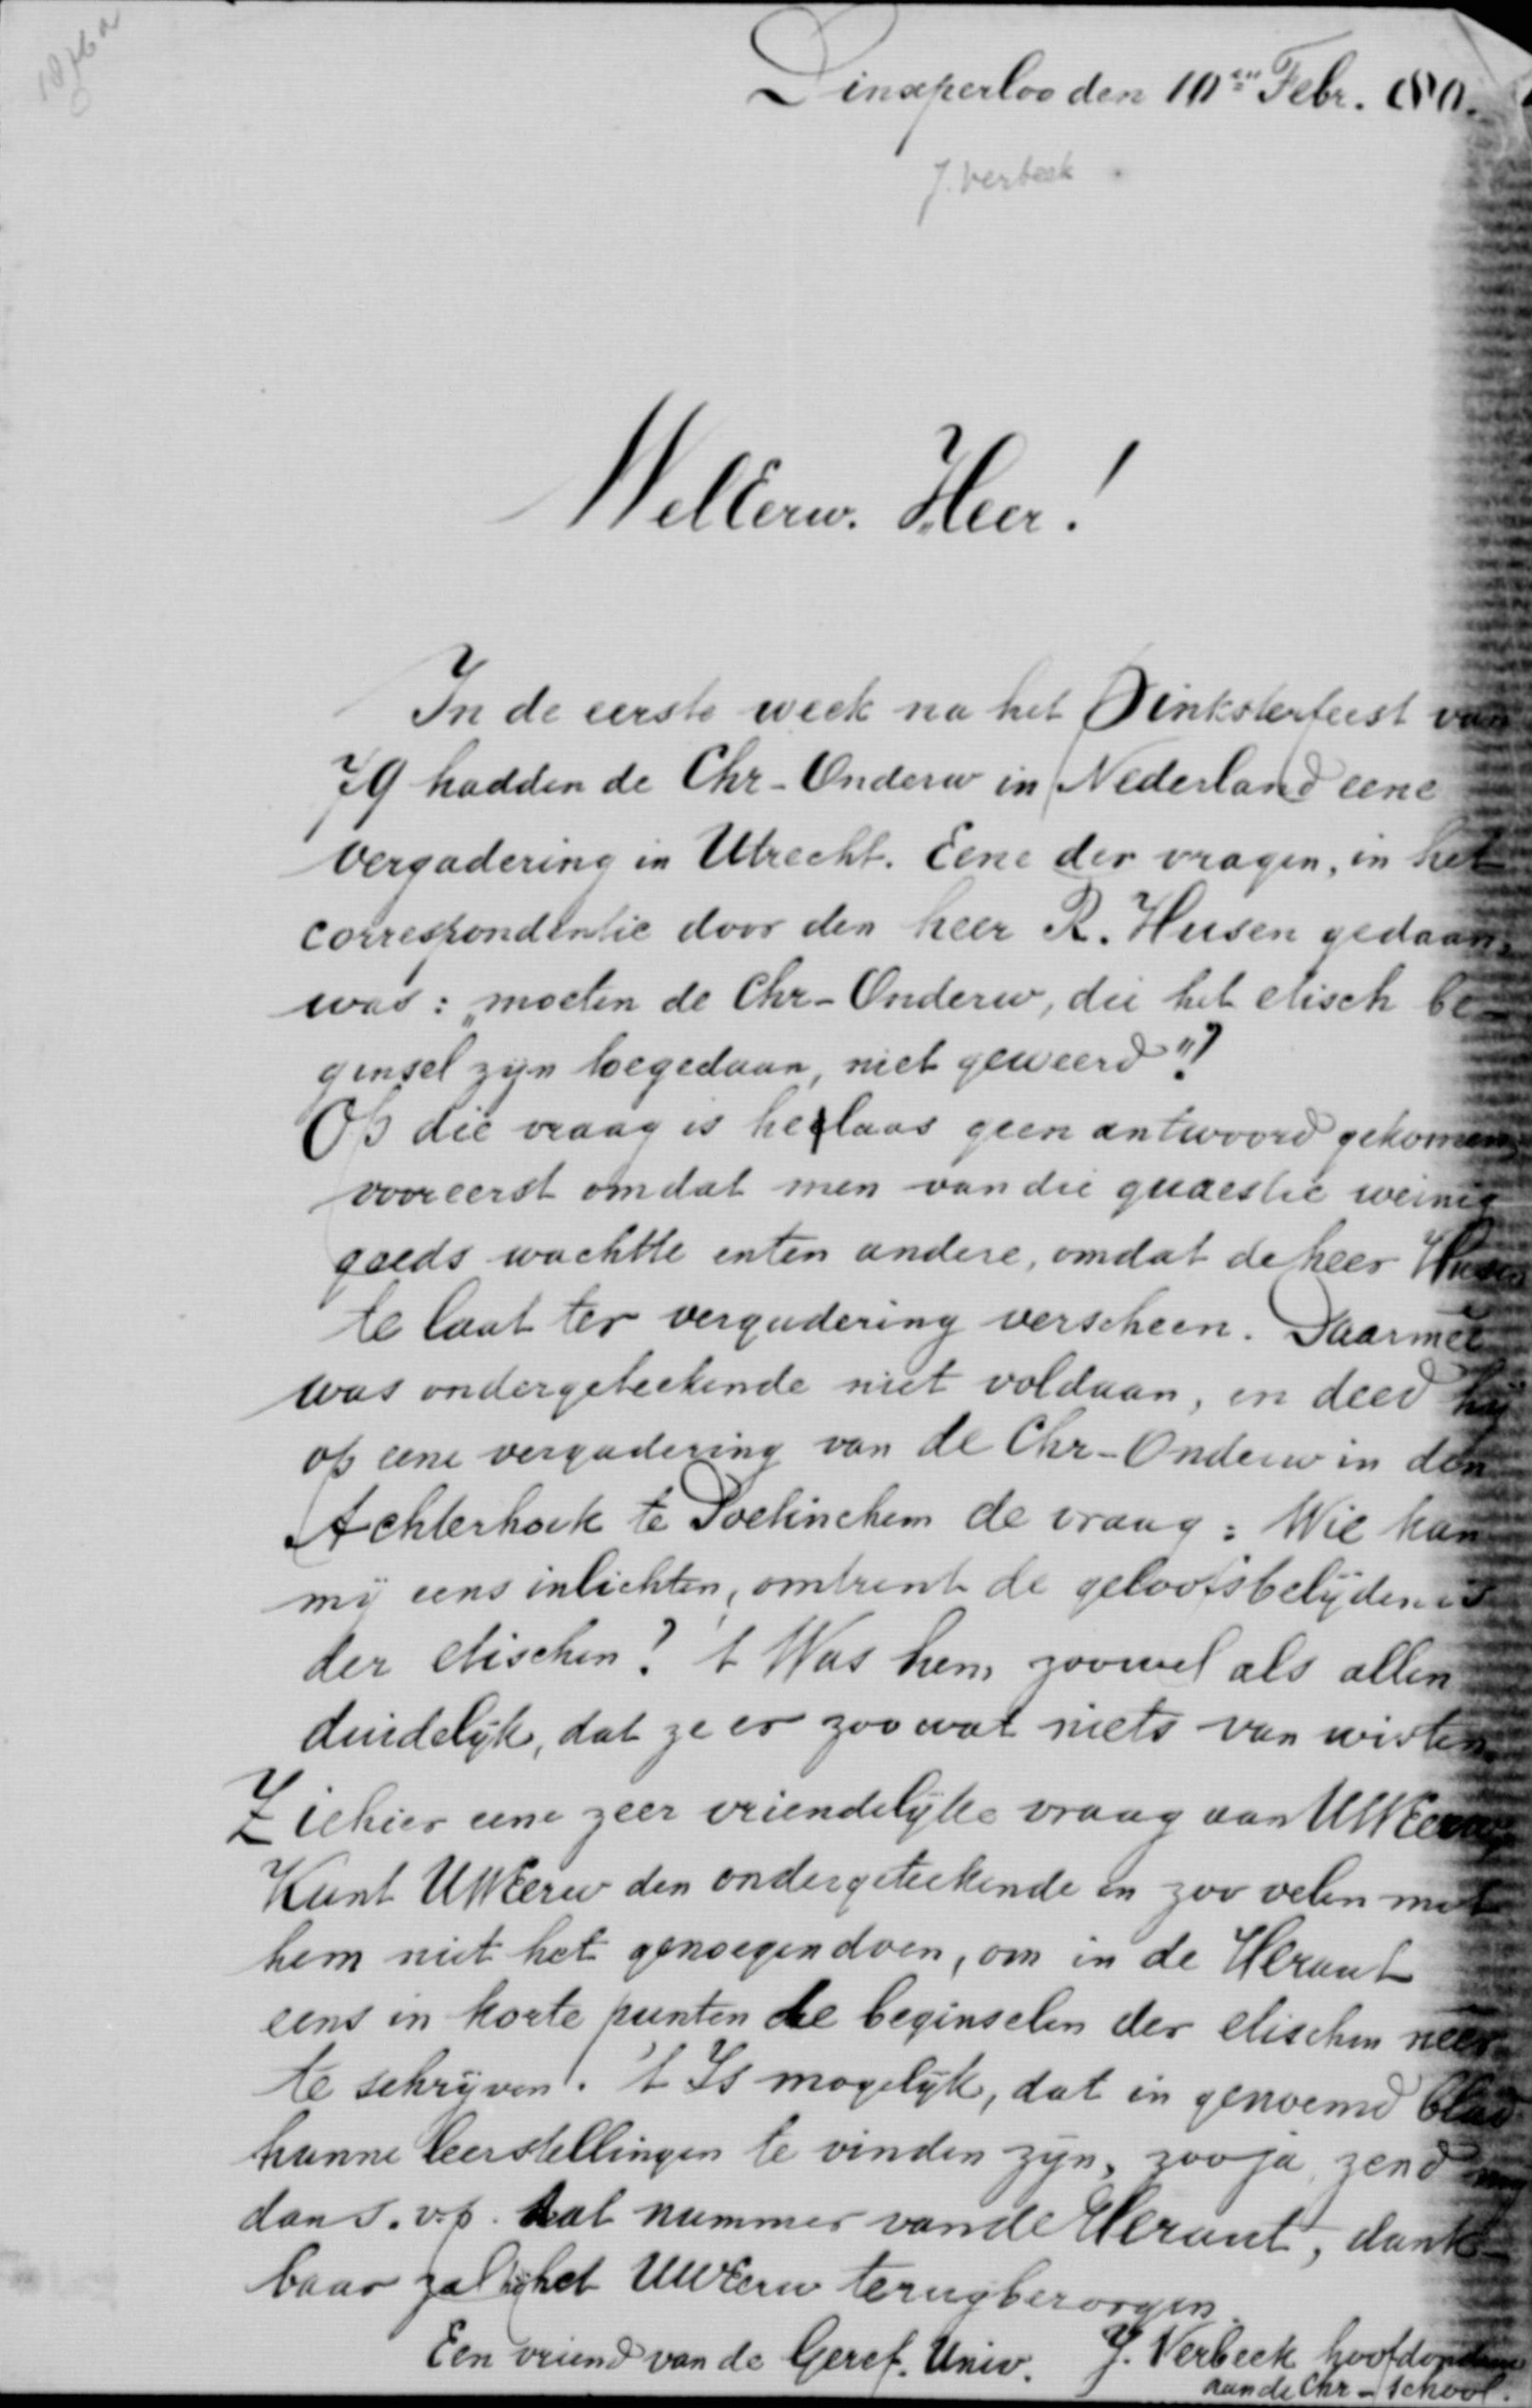 1876a
Dinxperloo den 10en Febr. 80.
J. Verbeek
WelEerw. Heer!
In de eerste week na het Pinksterfeest van
79 hadden de Chr-Onderw in Nederland eene
vergadering in Utrecht. Eene der vragen, in het
correspondentie door den heer R. Husen gedaan,
was: „moeten de Chr-Onderw, die het etisch be-
ginsel zijn toegedaan, niet geweerd"?
Op die vraag is helaas geen antwoord gekomen
vooreerst omdat men van die quaestie weinig
goeds wachtte enten andere, omdat de heer Husen
te laat ter vergadering verscheen. Daarmeê
was ondergeteekende niet voldaan, en deed hij
op eene vergadering van de Chr-Onderw in den
Achterhoek te Doetinchem de vraag: Wie kan
mij eens inlichten, omtrent de geloofsbelijdenis
der etischen? 't Was hem zoowel als allen
duidelijk, dat ze er zoowat niets van wisten
Ziehier eene zeer vriendelijke vraag aan UWEerw
Kunt UWEerw den ondergeteekende en zoo velen met
hem niet het genoegen doen, om in de Heraut
eens in korte punten de beginselen der etischen neer
te schrijven. 't Is mogelijk, dat in genoemd blad
hunne leerstellingen te vinden zijn, zoo ja, zend mij
dan s.v.p. dat nummer van de Heraut, dank-
baar zal hij het UWEerw terugbezorgen.
Een vriend van de Geref. Univ. J. Verbeek hoofdonderw
aan de Chr-school.